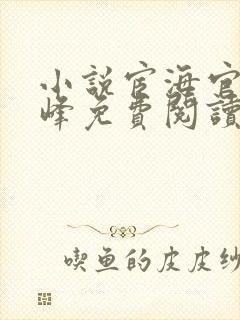 小說宦海官
峰免費閱讀
喫魚的皮皮紗